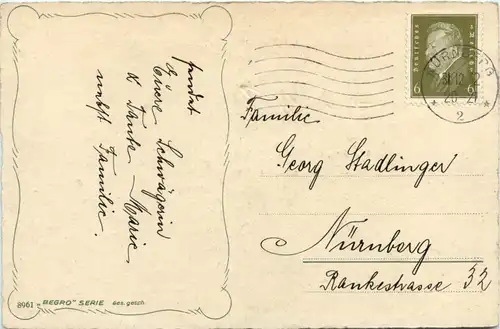 sendet
Euere Schwägerin
u Tante Marie
nebst Familie.
8961 "BEGRO" SERIE Ges. gesch.
Deutsches Reich
6 6
NÜRNBERG
31.12
20-21
* 2 *
Familie
Georg Stadlinger
Nürnberg
Rankestrasse 32